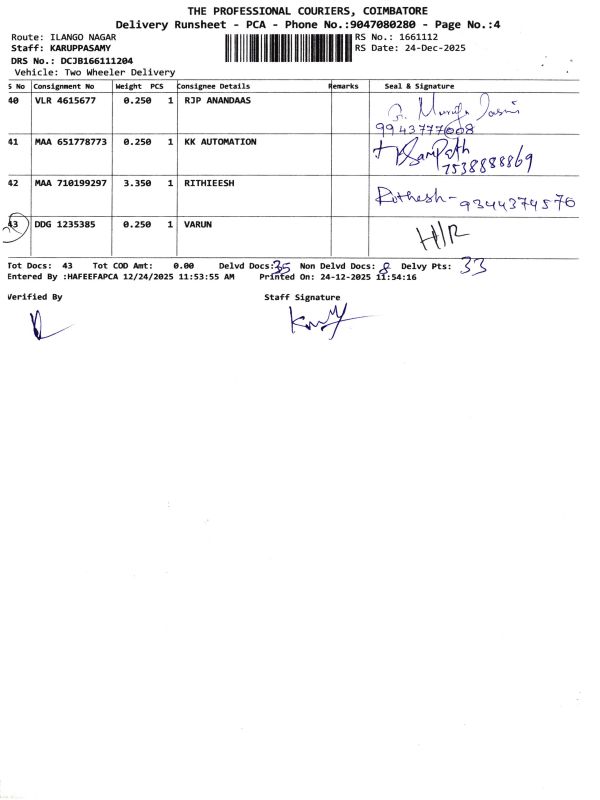 THE PROFESSIONAL COURIERS, COIMBATORE
Delivery Runsheet - PCA - Phone No.:9047080280 - Page No.:4
Route: ILANGO NAGAR RS No.: 1661112
Staff: KARUPPASAMY RS Date: 24-Dec-2025
DRS No.: DCJB166111204
Vehicle: Two Wheeler Delivery
S No Consignment No Weight PCS Consignee Details Remarks Seal & Signature
40 VLR 4615677 0.250 1 RJP ANANDAAS
9943777608
41 MAA 651778773 0.250 1 KK AUTOMATION Sampath
7538888869
42 MAA 710199297 3.350 1 RITHIEESH Rithesh-9344374576
43 DDG 1235385 0.250 1 VARUN H/R
Tot Docs: 43 Tot COD Amt: 0.00 Delvd Docs:35 Non Delvd Docs: 8 Delvy Pts: 33
Entered By :HAFEEFAPCA 12/24/2025 11:53:55 AM Printed On: 24-12-2025 11:54:16
Verified By Staff Signature